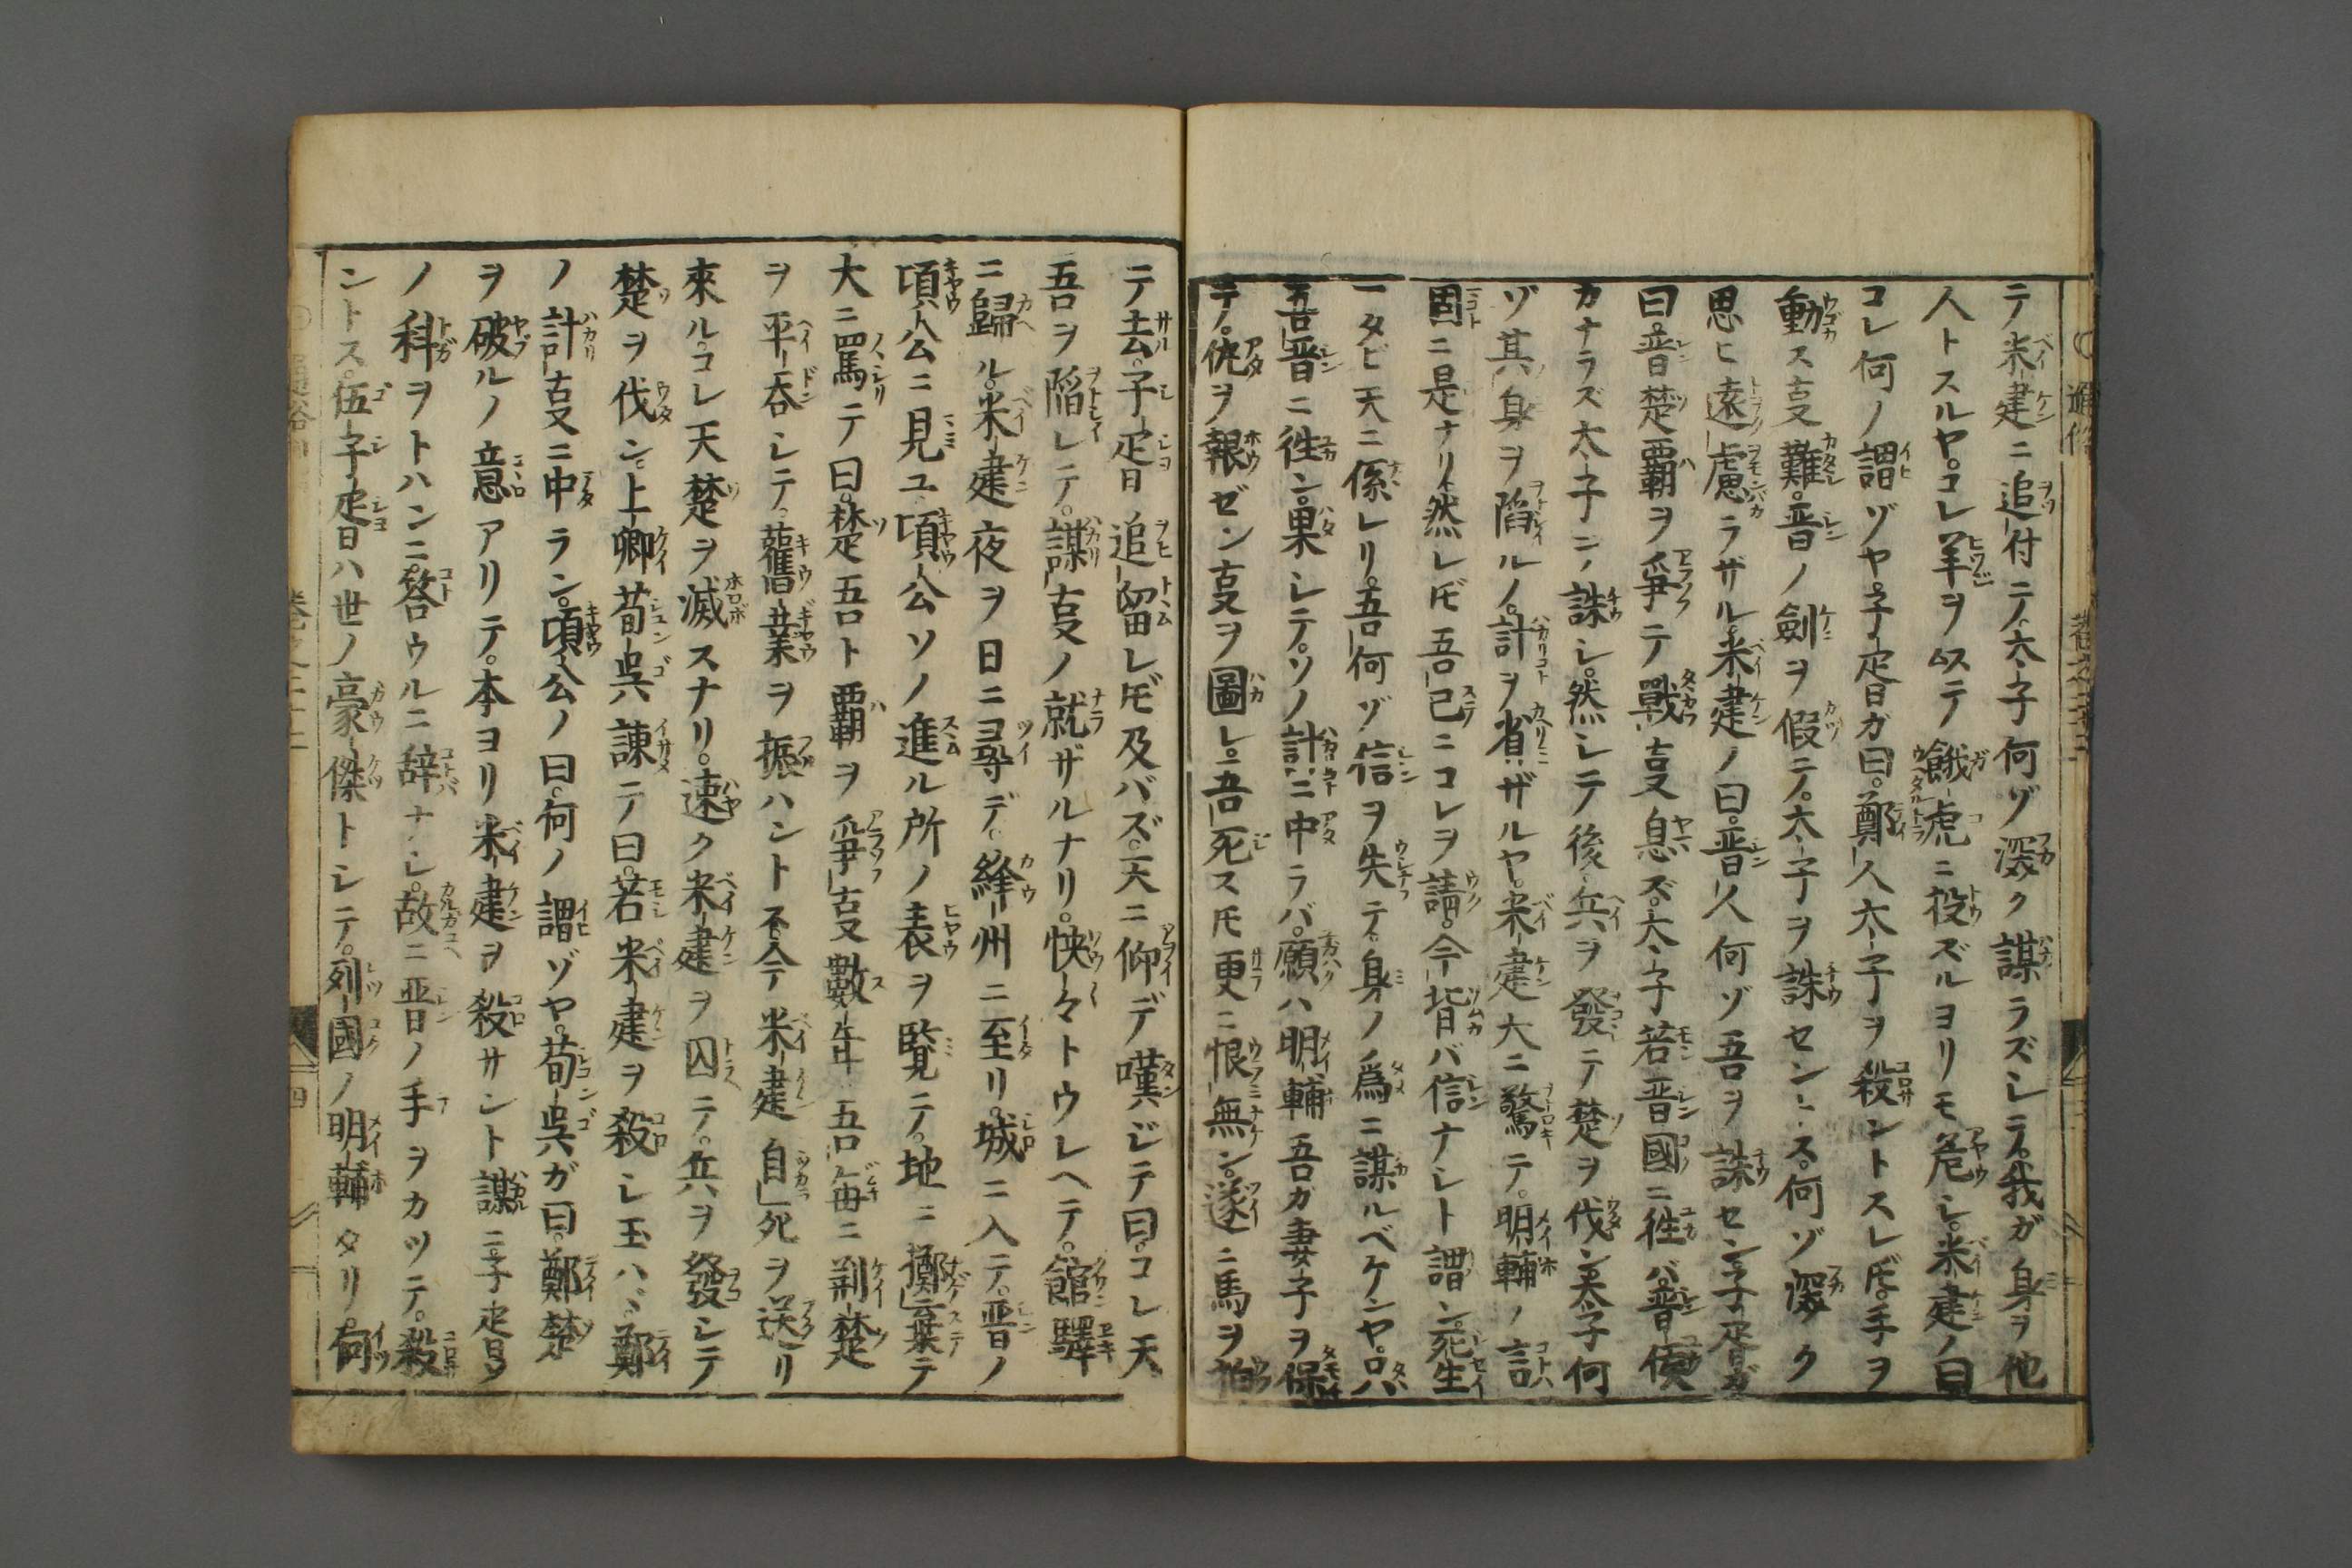 テ米建ニ追付テ太子何ゾ深ク謀ラズシテ我ガ身ヲ他
人トスルヤ。コレ羊ヲ以テ餓虎ニ役ズルヨリモ危シ。米建ノ曰
コレ何ノ謂ゾヤ。子疋日ガ曰。鄭人太子ヲ殺ントスレ𪜈。手ヲ
動ス㕝難。晋ノ劍ヲ假テ。太子ヲ誅セントス。何ゾ深ク
思ヒ遠慮ラザル。米建ノ曰。晋人何ゾ吾ヲ誅セン子胥ガ
曰晋楚覇ヲ爭テ戰㕝息ズ。太子若晋國ニ徃バ晋侯
カナラズ太子ヲ誅シ。然シテ後兵ヲ發テ楚ヲ伐ン太子何
ゾ其身ヲ陷ルノ。計ヲ省ザルヤ。米建大ニ驚テ。明輔ノ言
固ニ是ナリ。然レ𪜈吾已ニコレヲ請。今背バ信ナシト謂ン。死生
一タビ天ニ係レリ。吾何ゾ信ヲ失テ。身ノ爲ニ謀ルベケンヤ。只
吾晋ニ徃ン。果シテ。ソノ計ニ中ラバ。願ハ明輔吾ガ妻子ヲ保
テ。仇ヲ報ゼン㕝ヲ圖レ。吾死ス𪜈更ニ恨無ン。遂ニ馬ヲ拍
テ去。子疋日追留レ𪜈及バズ。天ニ仰デ嘆ジテ曰。コレ天
吾ヲ陷レテ。謀㕝ノ就ザルナリ。怏々トウレヘテ。館驛
ニ歸ル。米建夜ヲ日ニ尋デ。絳州ニ至リ。城ニ入テ。晋ノ
頃公ニ見ユ。頃公ソノ進ル所ノ表ヲ覧テ。地ニ擲棄テ
大ニ罵テ曰。楚吾ト覇ヲ爭㕝數年吾毎ニ荊楚
ヲ平吞シテ。舊業ヲ振ハント不。今米建自死ヲ送リ
來ル。コレ天楚ヲ滅スナリ。速ク米建ヲ囚テ。兵ヲ發シテ
楚ヲ伐ン。上卿荀呉諫テ曰。若米建ヲ殺シ玉ハヾ。鄭
ノ計㕝ニ中ラン。頃公ノ曰。何ノ謂ゾヤ。荀呉ガ曰。鄭楚
ヲ破ルノ意アリテ。本ヨリ米建ヲ殺サント謀ニ子疋日
ノ科ヲトハンニ。答ウルニ辞ナシ。故ニ晋ノ手ヲカツテ。殺
ントス。伍子疋日ハ世ノ豪傑トシテ。列國ノ明輔タリ。何
通俗
巻之十二
四